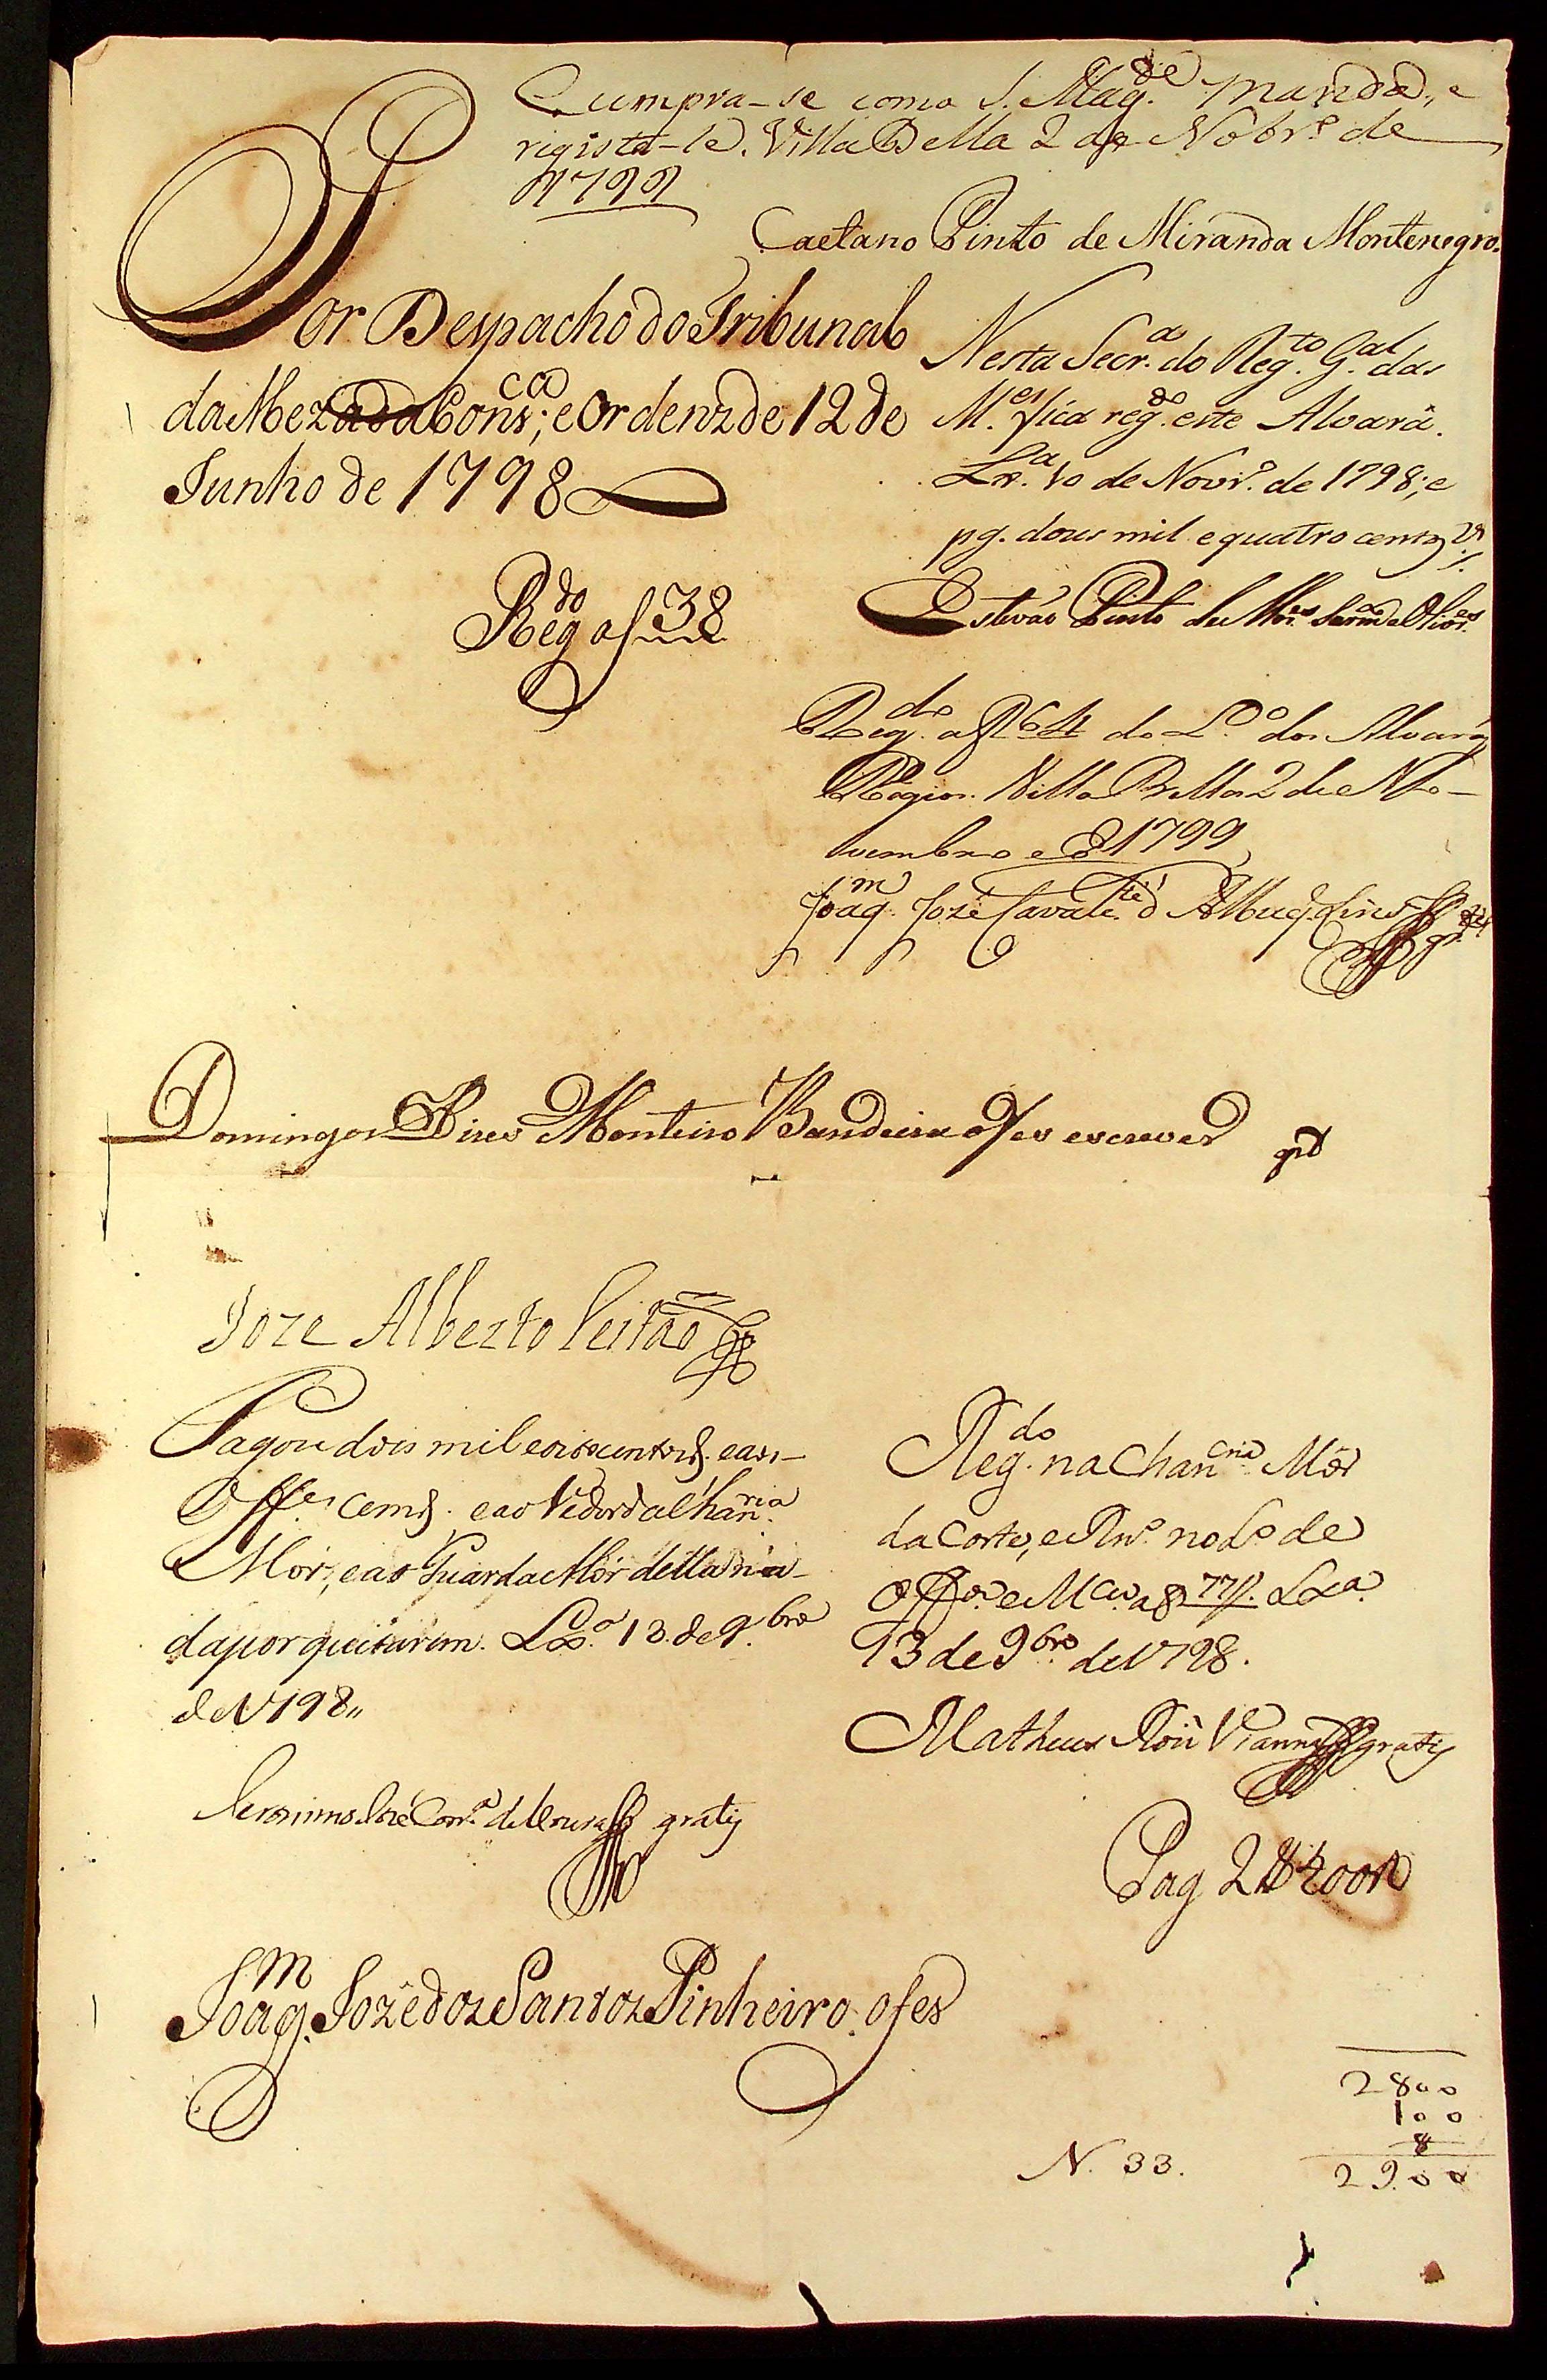 Cumpra-se como S. Mag.de manda, e
regista-se. Villa Bella 2 de Nobr.o de
1799
Caetano Pinto de Miranda Montenegro.
Por Despacho do Tribunal
da Meza da Cons.cca; e Ordenz de 12 de
Junho de 1798
Reg.do a f 38
Nesta Secr.a do Reg.to G.al das
M.es fica reg.do este Alvará.
Lx.a 10 de Novr.o de 1798; e
pg. dous mil e quatro centos rs.
Estevão Pinto de
Reg.do a f 64 do L.o dos Alvarás
Regios. Villa Bella 2 de No-
vembro de 1799
Joaq.m José Cavalc.te d'Albuq.e Lins
Domingos Pires Monteiro Bandeira o fes escrever
Joze Alberto Leitão
Pagou dois mil e oitocentos rs. e aos
Off.es cem rs. e ao Vedor da Chan.ria
Mor, e ao Guarda Mór della na-
da por quitarem. Lx.a 13 de 9.bro
de 1798,,
Jeronimo José Corr.a de Moura gratis
Reg.do na Chan.cria Mór
da Corte, e Rn.o no L.o de
Off.os e M.ces a f 77 v. Lx.a
13 de 9.bro de 1798.
Matheus Roiz Vianna gratis
Pag 2$400 rs
Joaq.m Jozé doz Santoz Pinheiro. o fes
2800
100
8
N. 33.
2900